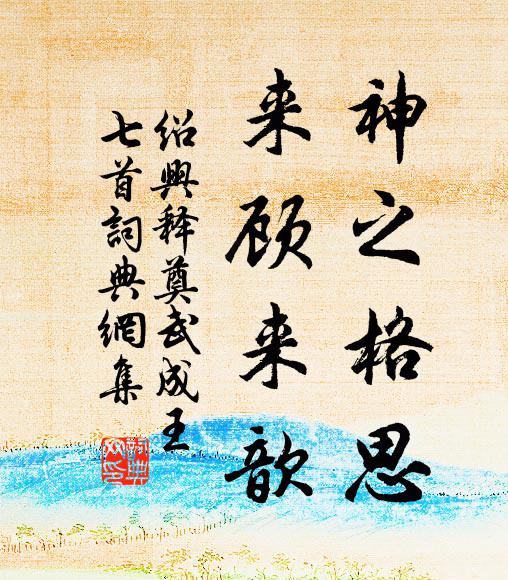 神之格思
来顾来歆
绍興释奠武成王
七首詞典網集